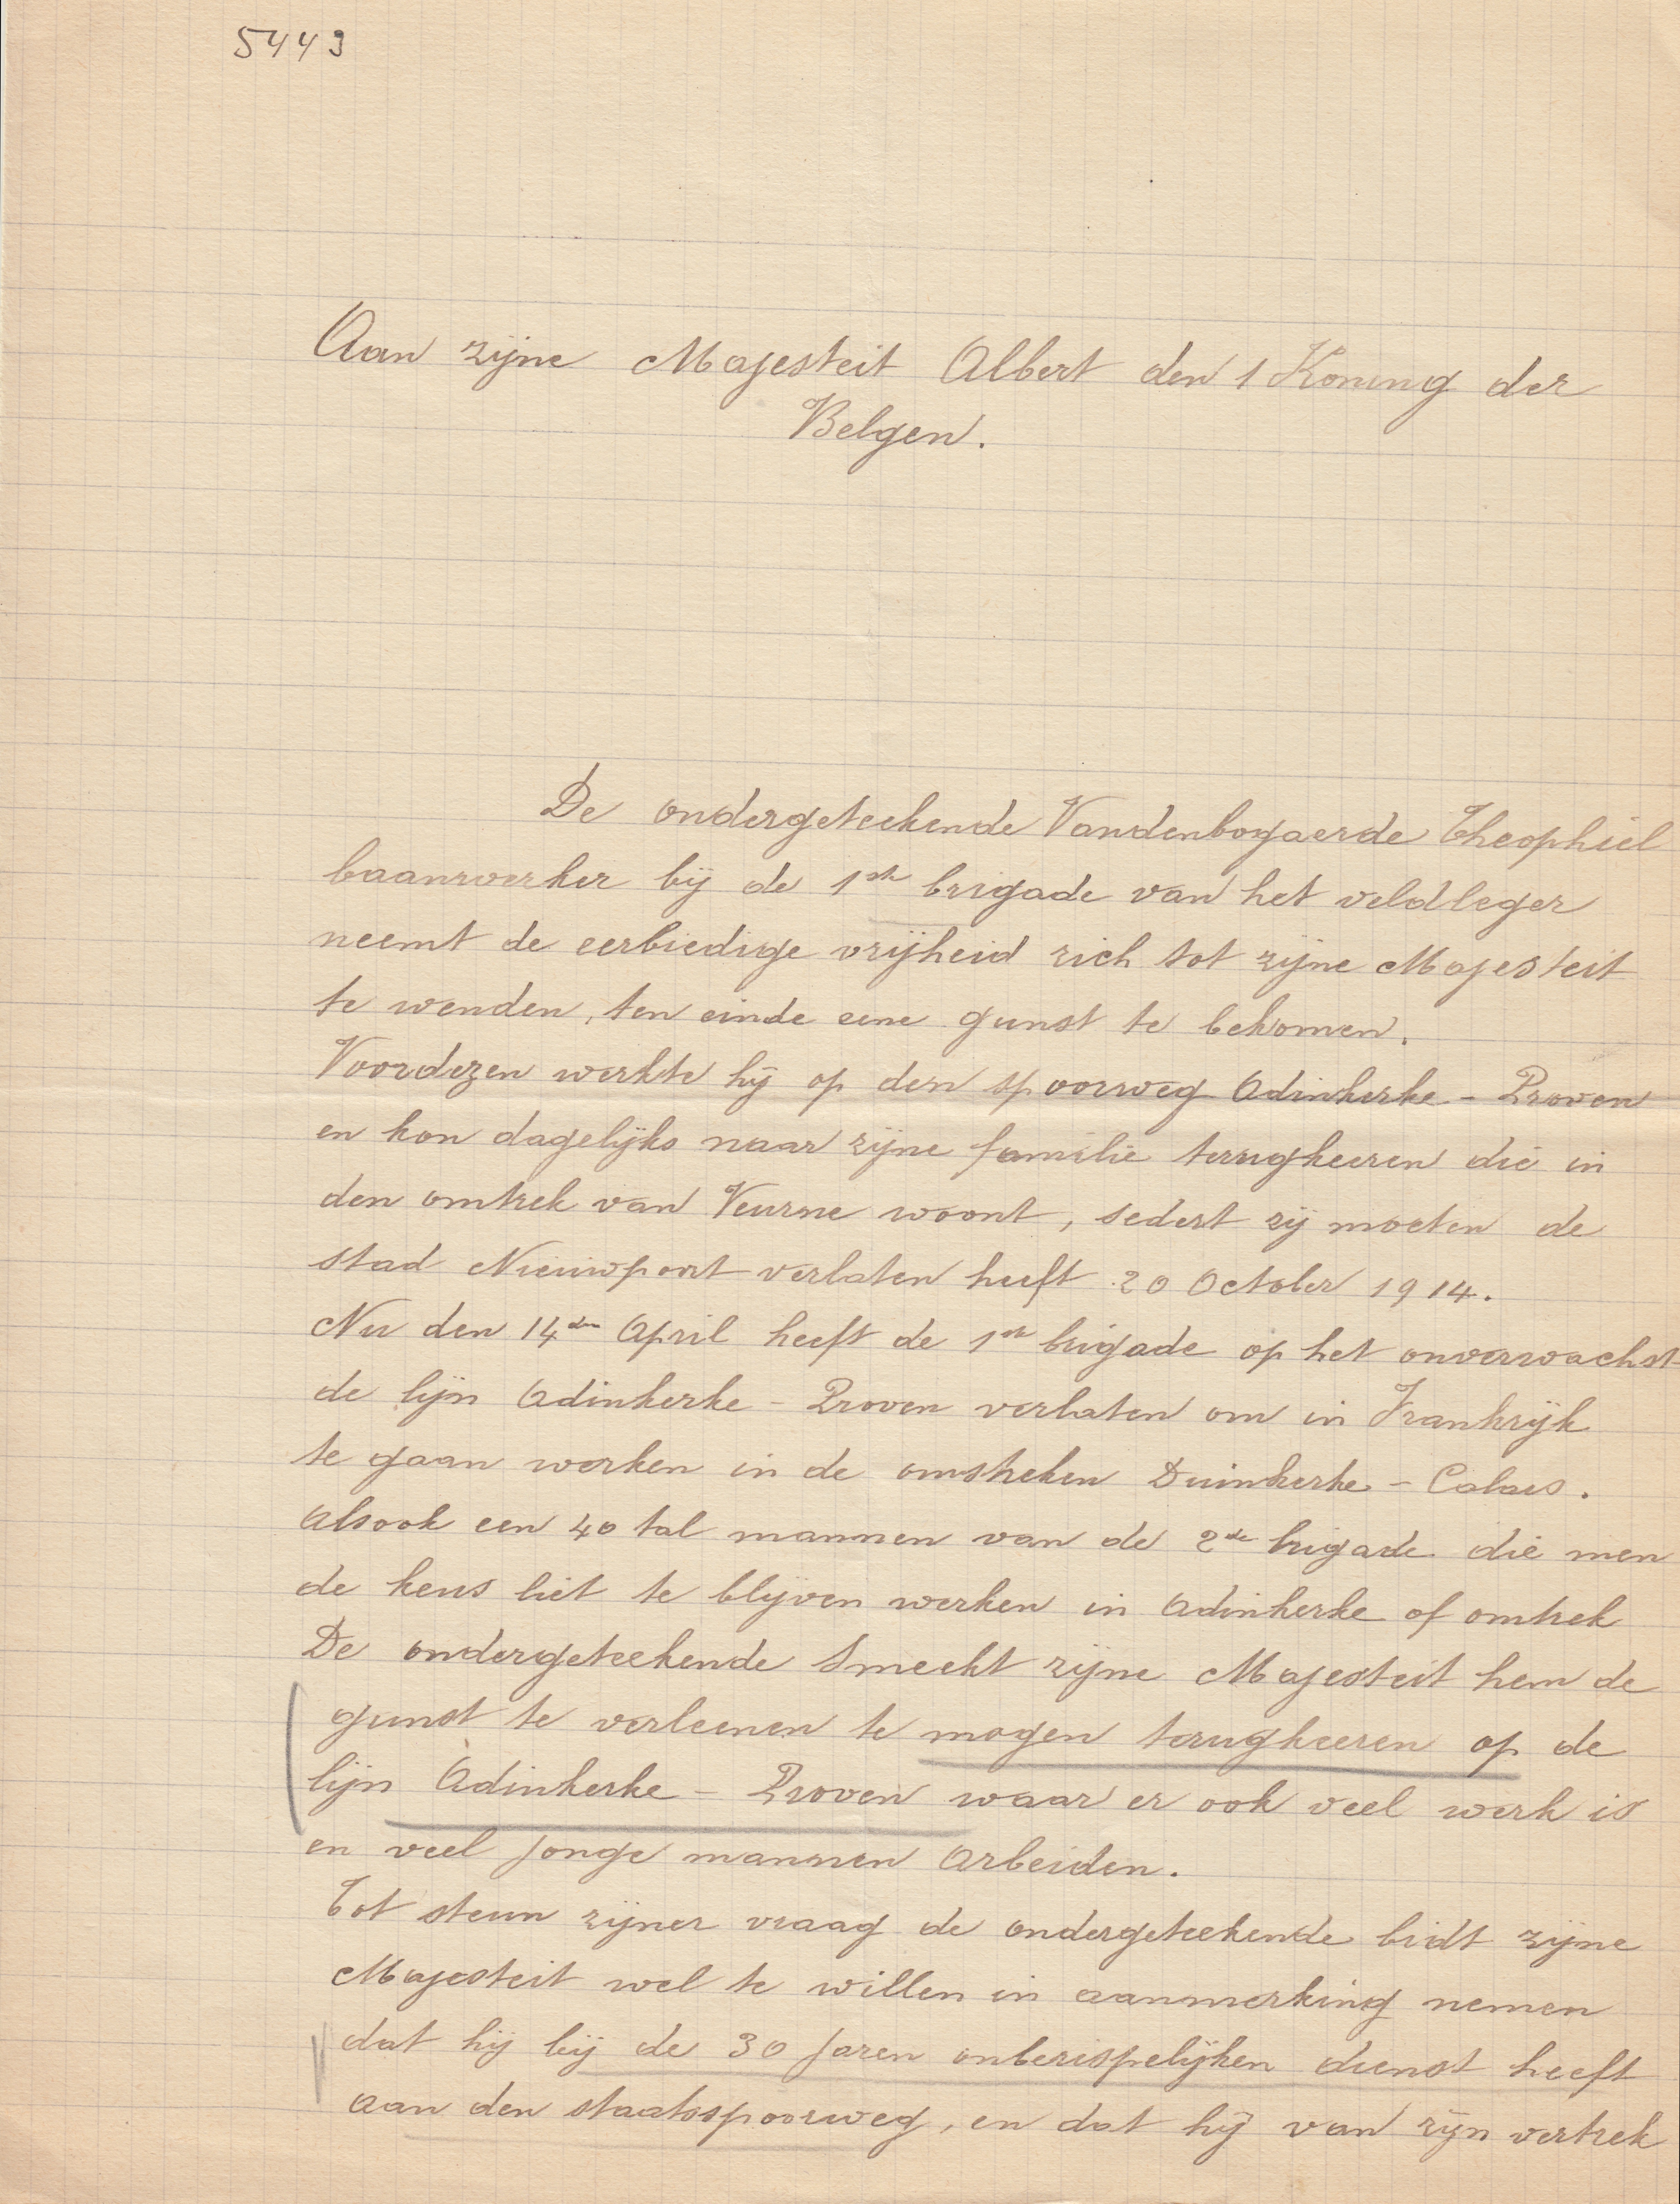 5443
Aan zijne Majesteit Albert den 1 Koning der
Belgen.
De ondergeteekende Vandenbogaerde Theophiel
baanwerker bij de 1ste brigade van het veldleger
neemt de eerbiedige vrijheid zich tot zijne Majesteit
te wenden, ten einde eene gunst te bekomen.
Voordezen werkte hij op den spoorweg Adinkerke - Proven
en kon dagelijks naar zijne familie terugkeeren die in
den omtrek van Veurne woont, sedert zij moeten de
stad Nieuwpoort verlaten heeft 20 October 1914.
Nu den 14den April heeft de 1ste brigade op het onverwachst
de lijn Adinkerke - Proven verlaten om in Frankrijk
te gaan werken in de omstreken Duinkerke - Calais.
Alsook een 40 tal mannen van de 2de brigade die men
de keus liet te blijven werken in Adinkerke of omtrek
De ondergeteekende smeekt zijne Majesteit hem de
gunst te verleenen te mogen terugkeeren op de
lijn Adinkerke - Proven waar er ook veel werk is
en veel jonge mannen arbeiden.
Tot steun zijner vraag de ondergeteekende bidt zijne
Majesteit wel te willen in aanmerking nemen
dat hij bij de 30 jaren onberispelijken dienst heeft
aan den staatsspoorweg, en dat hij van zijn vertrek